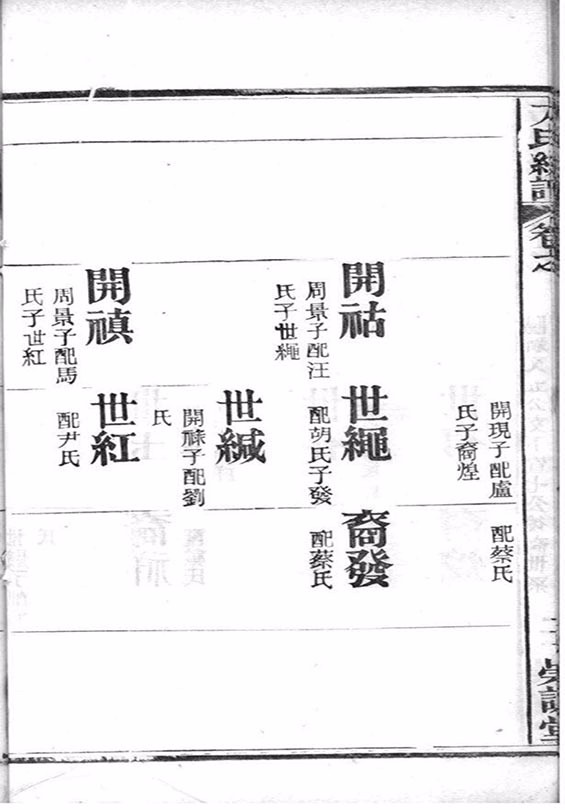 氏 卷
開現子配盧
氏子裔煌
配蔡氏
開祜
周景子配汪
氏子世繩
世繩
配胡氏子發
裔發
配蔡氏
世緘
開祿子配劉
氏
開禛
周景子配馬
氏子世紅
世紅
配尹氏